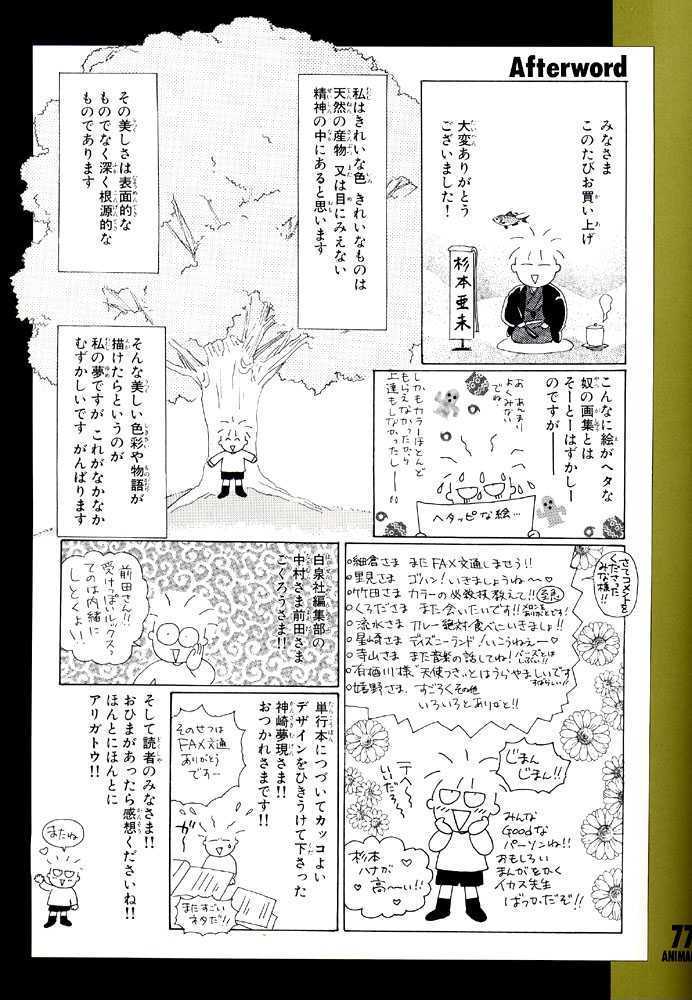 Afterword
みなさま
このたびお買い上げ
大変ありがとう
ございました!
杉本亜未
こんなに絵がヘタな
奴の画集とは
そーとーはずかしー
のですが——
お、あんまり
よくみない
でね。
しかもカラーほとんど
もらえなかったから
上達もしなかったしー——
ヘタッピな絵…
私はきれいな色 きれいなものは
天然の産物 又は目にみえない
精神の中にあると思います
その美しさは表面的な
ものでなく深く根源的な
ものであります
そんな美しい色彩や物語が
描けたらというのが
私の夢ですが これがなかなか
むずかしいです がんばります
さてコメントを
くださった
みな様!!
○細倉さま またFAX文通しませう!!
○里見さま ゴハン!いきましょうね〜♡
○竹田さま カラーの必殺技教えて!!
○くろださま また会いたいです!!
○流水さま カレー絶対食べにいきましょ!!
○星崎さま ディズニーランド!いこうねえー♡
○寺山さま また音楽の話してね!
○有栖川様 "天使っぷ"とはうらやましいです
○嬉野さま すごろくその他
いろいろとありがと!!
白泉社編集部の
中村さま前田さま
ごくろうさま!!
前田さん!!
受けっぽいルックス〜
てのは内緒に
しとくよ!!
じまん
じまん!!
テヘへ
いいだろ〜
みんな
Goodな
パーソンね!!
おもしろい
まんがをかく
イカス先生
ばっかだぞ!!
杉本
ハナが
高〜い!!
単行本につづいてカッコよい
デザインをひきうけて下さった
神崎夢現さま!!
おつかれさまです!!
そのせつは
FAX文通
ありがとう
です…
まだすごい
ネタだ!!
そして読者のみなさま!!
おひまがあったら感想くださいね!!
ほんとにほんとに
アリガトウ!!
またね
77
ANIMA